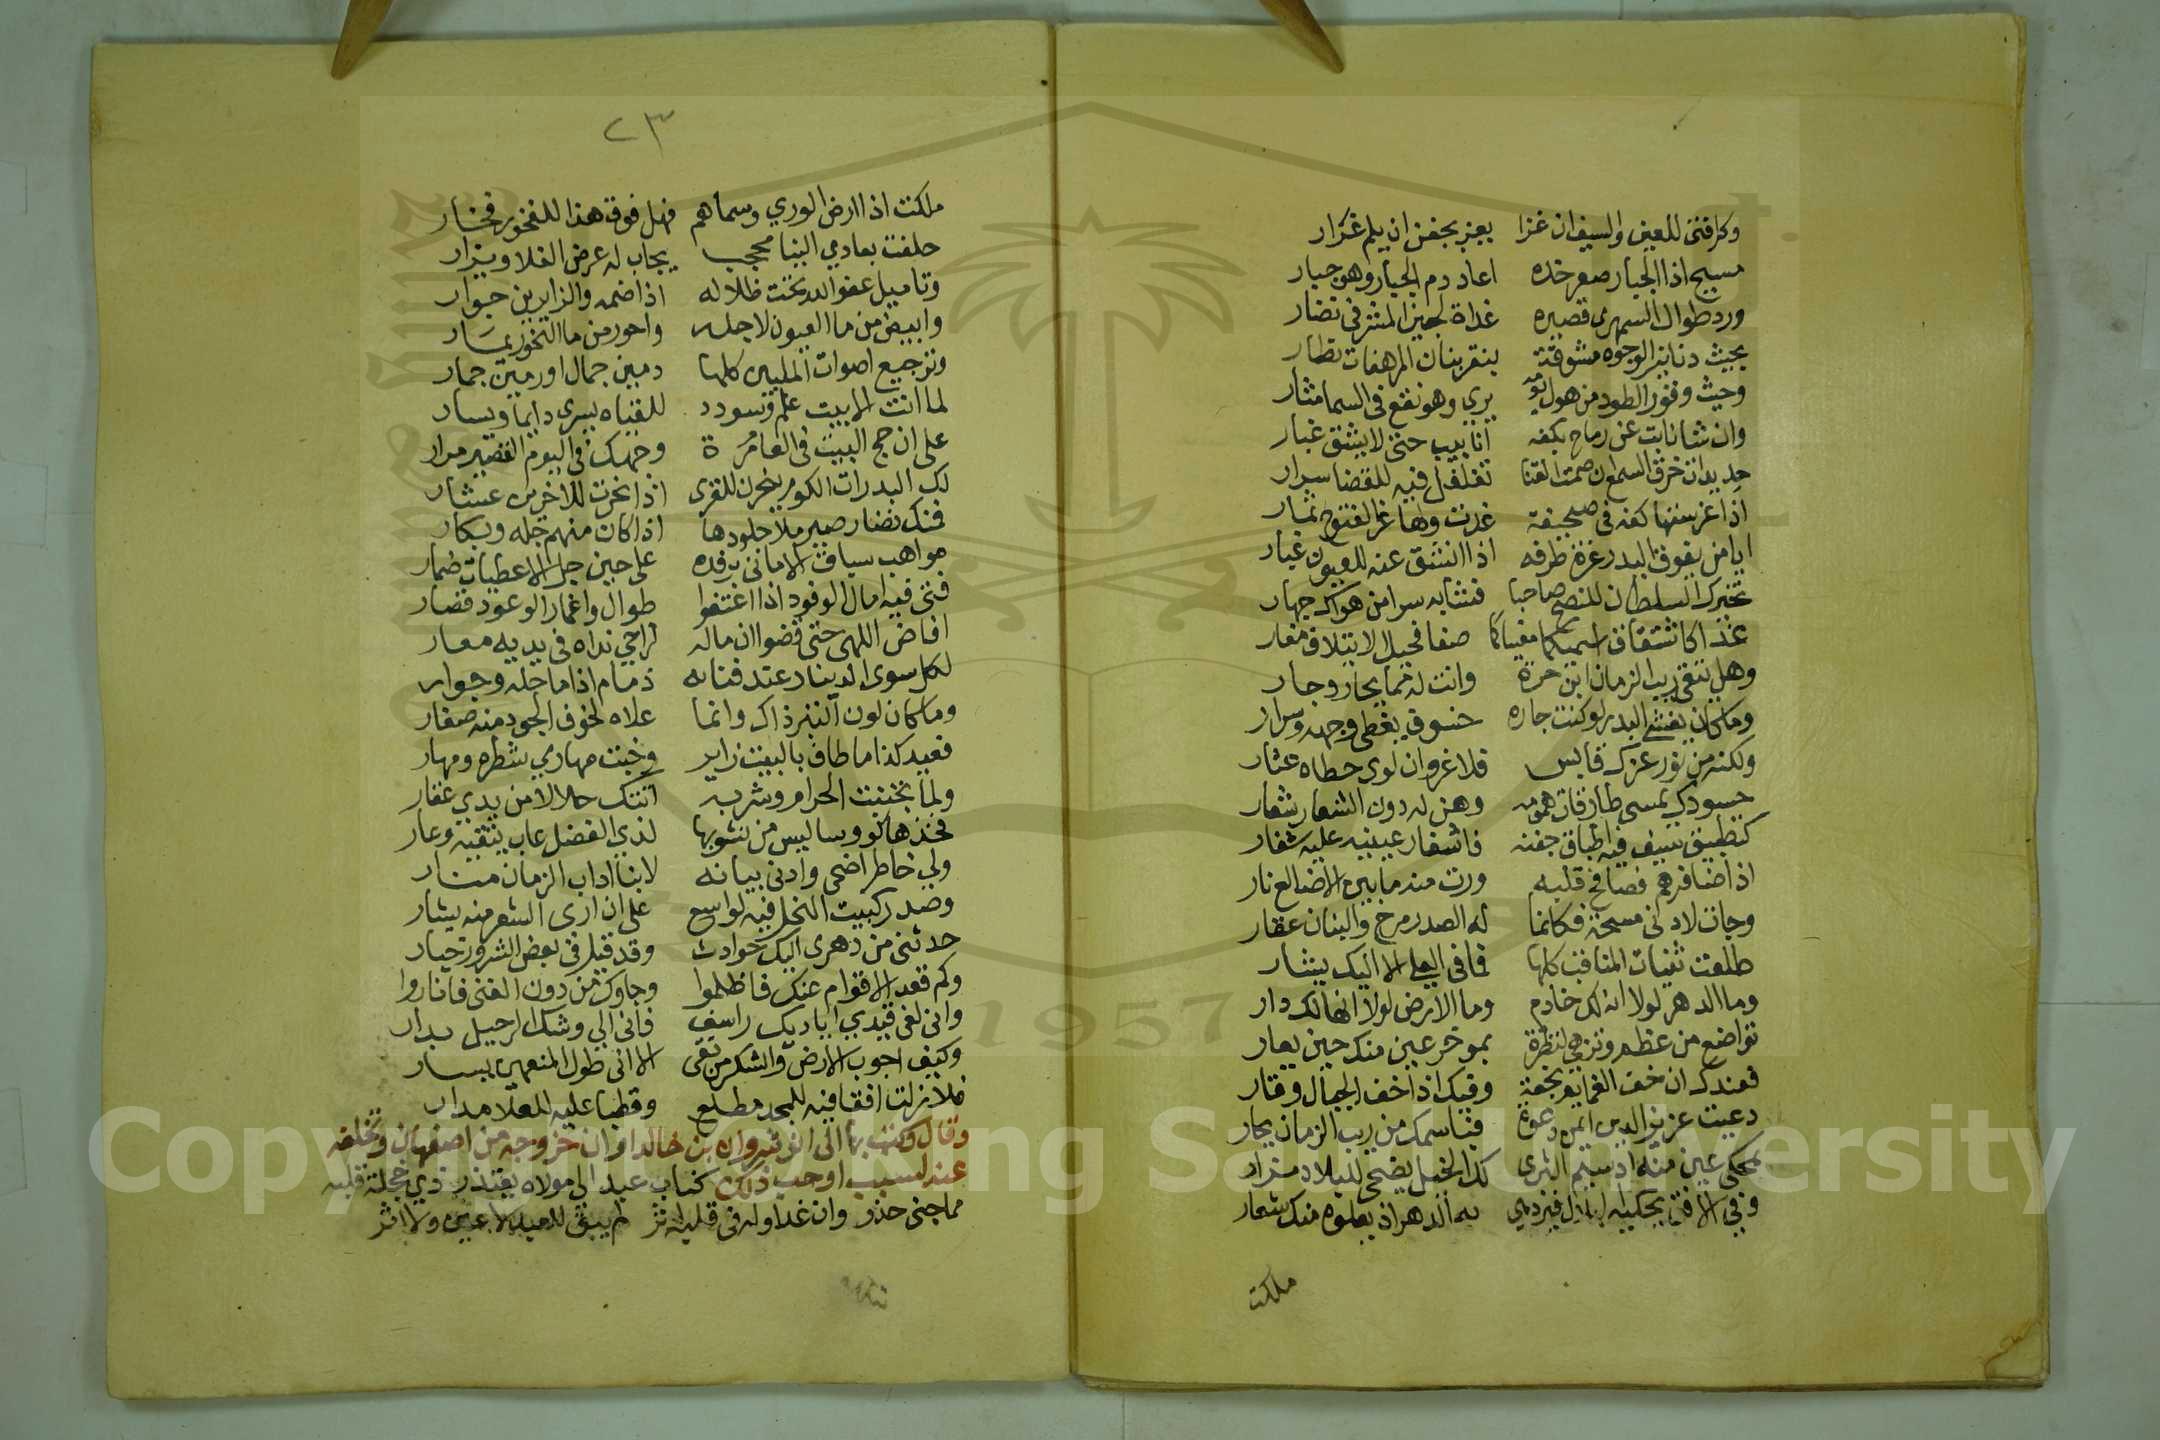 وكم فتى للعين والسيف ان غزا يعز بجفن ان يلم غرار
مسيح اذا الجبار صعر خده اعاد دم الجبار وهو جبار
ورد طوال السمهري قصيره غداة لجين المشرفي نضار
بحيث دنانير الوجوه مشوفة بنقر بنان المرهفات تطار
وحيث وقور الطود من هول يرى وهو نقع في السما مثار
وان شا نابت عن رماح بكفه انابيب حتى لا يشق غبار
جديدات خرق السمع ان صمت القنا تغلغل فيه للقضا سرار
اذا غرستها كفه في صحيفة غدت ولها غر الفتوح ثمار
ايا من يفوق البدر غرة طرفه اذا انشق عنه للعيون غبار
تخيرك السلطان للنصح صاحبا فشابه سرا من هواك جهار
غدا كاشتقاق اسميكما صفا فحبل الايتلاف مغار
وهل تتقي ريب الزمان ابن حرة وانت له مما يحاذر جار
وما كان يغشى البدر لو كنت جاره خسوف يغطي وجهه وسرار
ولكنه من نور عزك قابس فلا غرو ان لوى خطاه عثار
حسودك يمسي طارقات همومه وهن له دون الشعار شعار
كتطبيق سيف فيه اطباق جفنه فاشفار عينيه عليه شفار
اذا ضافرهم فصافح قلبه ورت منه ما بين الاضالع نار
وجات لادنى مسحة فكانما له الصدر مرخ والبنان عفار
طلعت ثنيات المناقب كلها فما في العلى الا اليك يشار
وما الدهر لولا انه لك خادم وما الارض لولا انها لك دار
تواضع من عظم وتزهى لنظرة بموخر عين منك حين يعار
فعندك ان خف الغمايم بجفة وفيك اذا خف الجبال وقار
دعيت عزيز الدين ايمن دعوة فباسمك من ريب الزمان يجار
لمحكي عين منه اذ سيم الثرى لك الخيل يضحى للبلاد مزار
وفي الافق يحكيه الهلال فيزدهي به الدهر اذ يعلوه منك شعار
ملكت
٢٣
ملكت اذا ارض الورى وسماهم فهل فوق هذا للفخور فخار
حلفت بعادي البنا محجب يجاب له عرض الفلا ويزار
وتاميل عفو الله تحت ظلاله اذا ضمه والزايرين جوار
وابيض من ما العيون لاجله واحمر من ما النحور يمار
وترجيع اصوات الملبين كلها دمين جمال او رمين جمار
لما انت الا بيت علم وسودد للقياه يسرى دايما ويسار
على ان حج البيت في العام مرة وحجك في اليوم القصير مرار
لك البدرات الكوم ينحرن للقرى اذا نحرت للاخرين عشار
فمنك نضار صير ملا جلودها اذا كان منهم جله وبكار
مواهب سباق الاماني برفده على حين جل الاعطيات ضمار
فتى فيه امال الوفود اذا اعتفوا طوال واعمار الوعود قصار
افاض اللهى حتى قضوا ان ماله لراجي نداه في يديه معار
لكل سوى الدينار عند فنائه ذمام اذا ما حله وجوار
وما كان لون التبر ذاك وانما علاه لخوف الجود منه صفار
فعيد كذا ما طاف بالبيت زاير وخبت مهاري شطره ومهار
ولما تجنبت الحرام وشربه اتتك حلالا من يدي عقار
فخذها كووسا ليس من نشوبها لذي الفضل عاب يتقيه وعار
ولي خاطر اضحى وادنى بيانه لابنا اداب الزمان منار
وصدر كبيت النحل فيه لواسع على ان ارى الشعر منه يشار
حدثني من دهري اليك حوادث وقد قيل في بعض الشرور خيار
وكم قعد الاقوام عنك فاظلموا وجاوك من دون الغنى فاناروا
واني لفي قيدي اياديك راسف فاني الي وشك الرحيل بدار
وكيف اجوب الارض والشكر من تقى الا اني طول المنعمين يسار
فلا زلت افقا فيه للمجد مطلع وقطبا عليه للعلا مدار
وقال وكتب بها الى انوشروان بن خالد اوان خروجه من اصفهان وتخلفه
عنه لسبب اوجب ذلك كتاب عبد الى مولاه يعتذر ذي خجلة قلبه
مما جنى حذر وان غدا وله في قلبه لم يبق للعبد لا عين ولا اثر